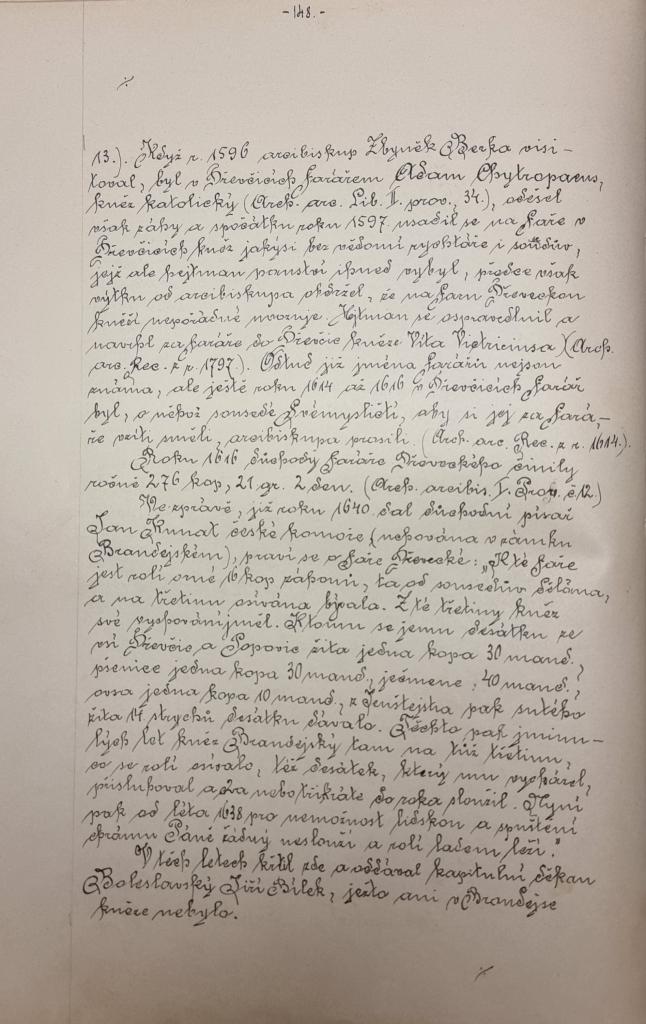 - 148. -
·/.
13.). Když r. 1596 arcibiskup Zbyněk Berka visi-
toval, byl v Dřevčicích farářem Adam Chytropaeus,
kněz katolický (Arch. arc. Lib. I. prov., 34.), odešel
však záhy a spočátku roku 1597 usadil se na faře v
Dřevčicích kněz jakýsi bez vědomí rychtáře i soudův,
jejž ale hejtman panství ihned vybyl, předce však
výtku od arcibiskupa obdržel, že na faru Dřeveckou
kněží nepořádné uvozuje. Hejtman se ospravedlnil a
navrhl za faráře do Dřevčic kněze Víta Victriciusa) (Arch.
arc. Rec. z r. 1797.). Odtud již jména farářů nejsou
známa, ale ještě roku 1614 až 1616 v Dřevčicích farář
byl, o něhož sousedé Svémysličtí, aby si jej za fará-
ře vzíti směli, arcibiskupa prosili. (Arch. arc. Rec. z r. 1614.).
Roku 1616 důchody faráře Dřeveckého činily
ročně 276 kop, 21 gr. 2 den. (Arch. arcibis. I. Prop. č. 12.)
Ve zprávě, již roku 1640 dal důchodní písař
Jan Kunat české komoře (uchována v zámku
Brandejském), praví se o faře Dřevecké: „K té faře
jest rolí orné 16 kop záhonů, ta od sousedův dělána,
a na třetinu osívána bývala. Z té třetiny kněz
své vychování jměl. K tomu se jemu desátku ze
vsi Dřevčic a Popovic žita jedna kopa 30 mand.,
pšenice jedna kopa 30 mand., ječmene, 40 mand.,
ovsa jedna kopa 10 mand., z Jenštejna pak sutého
žita 14 strychů desátku dávalo. Těchto pak jminu-
lých let kněz Brandejský tam na též třetinu,
co se rolí osívalo, též desátek, který mu vycházel,
přisluhoval a 2a nebo třikráte do roka sloužil. Nyní
pak od léta 1638 pro nemožnost lidskou a spuštění
chrámu Páně žádný neslouží a rolí ladem leží."
V těch letech křtil zde a oddával kapitulní děkan
Boleslavský Jiří Bílek, ježto ani v Brandejse
kněze nebylo.
·/.